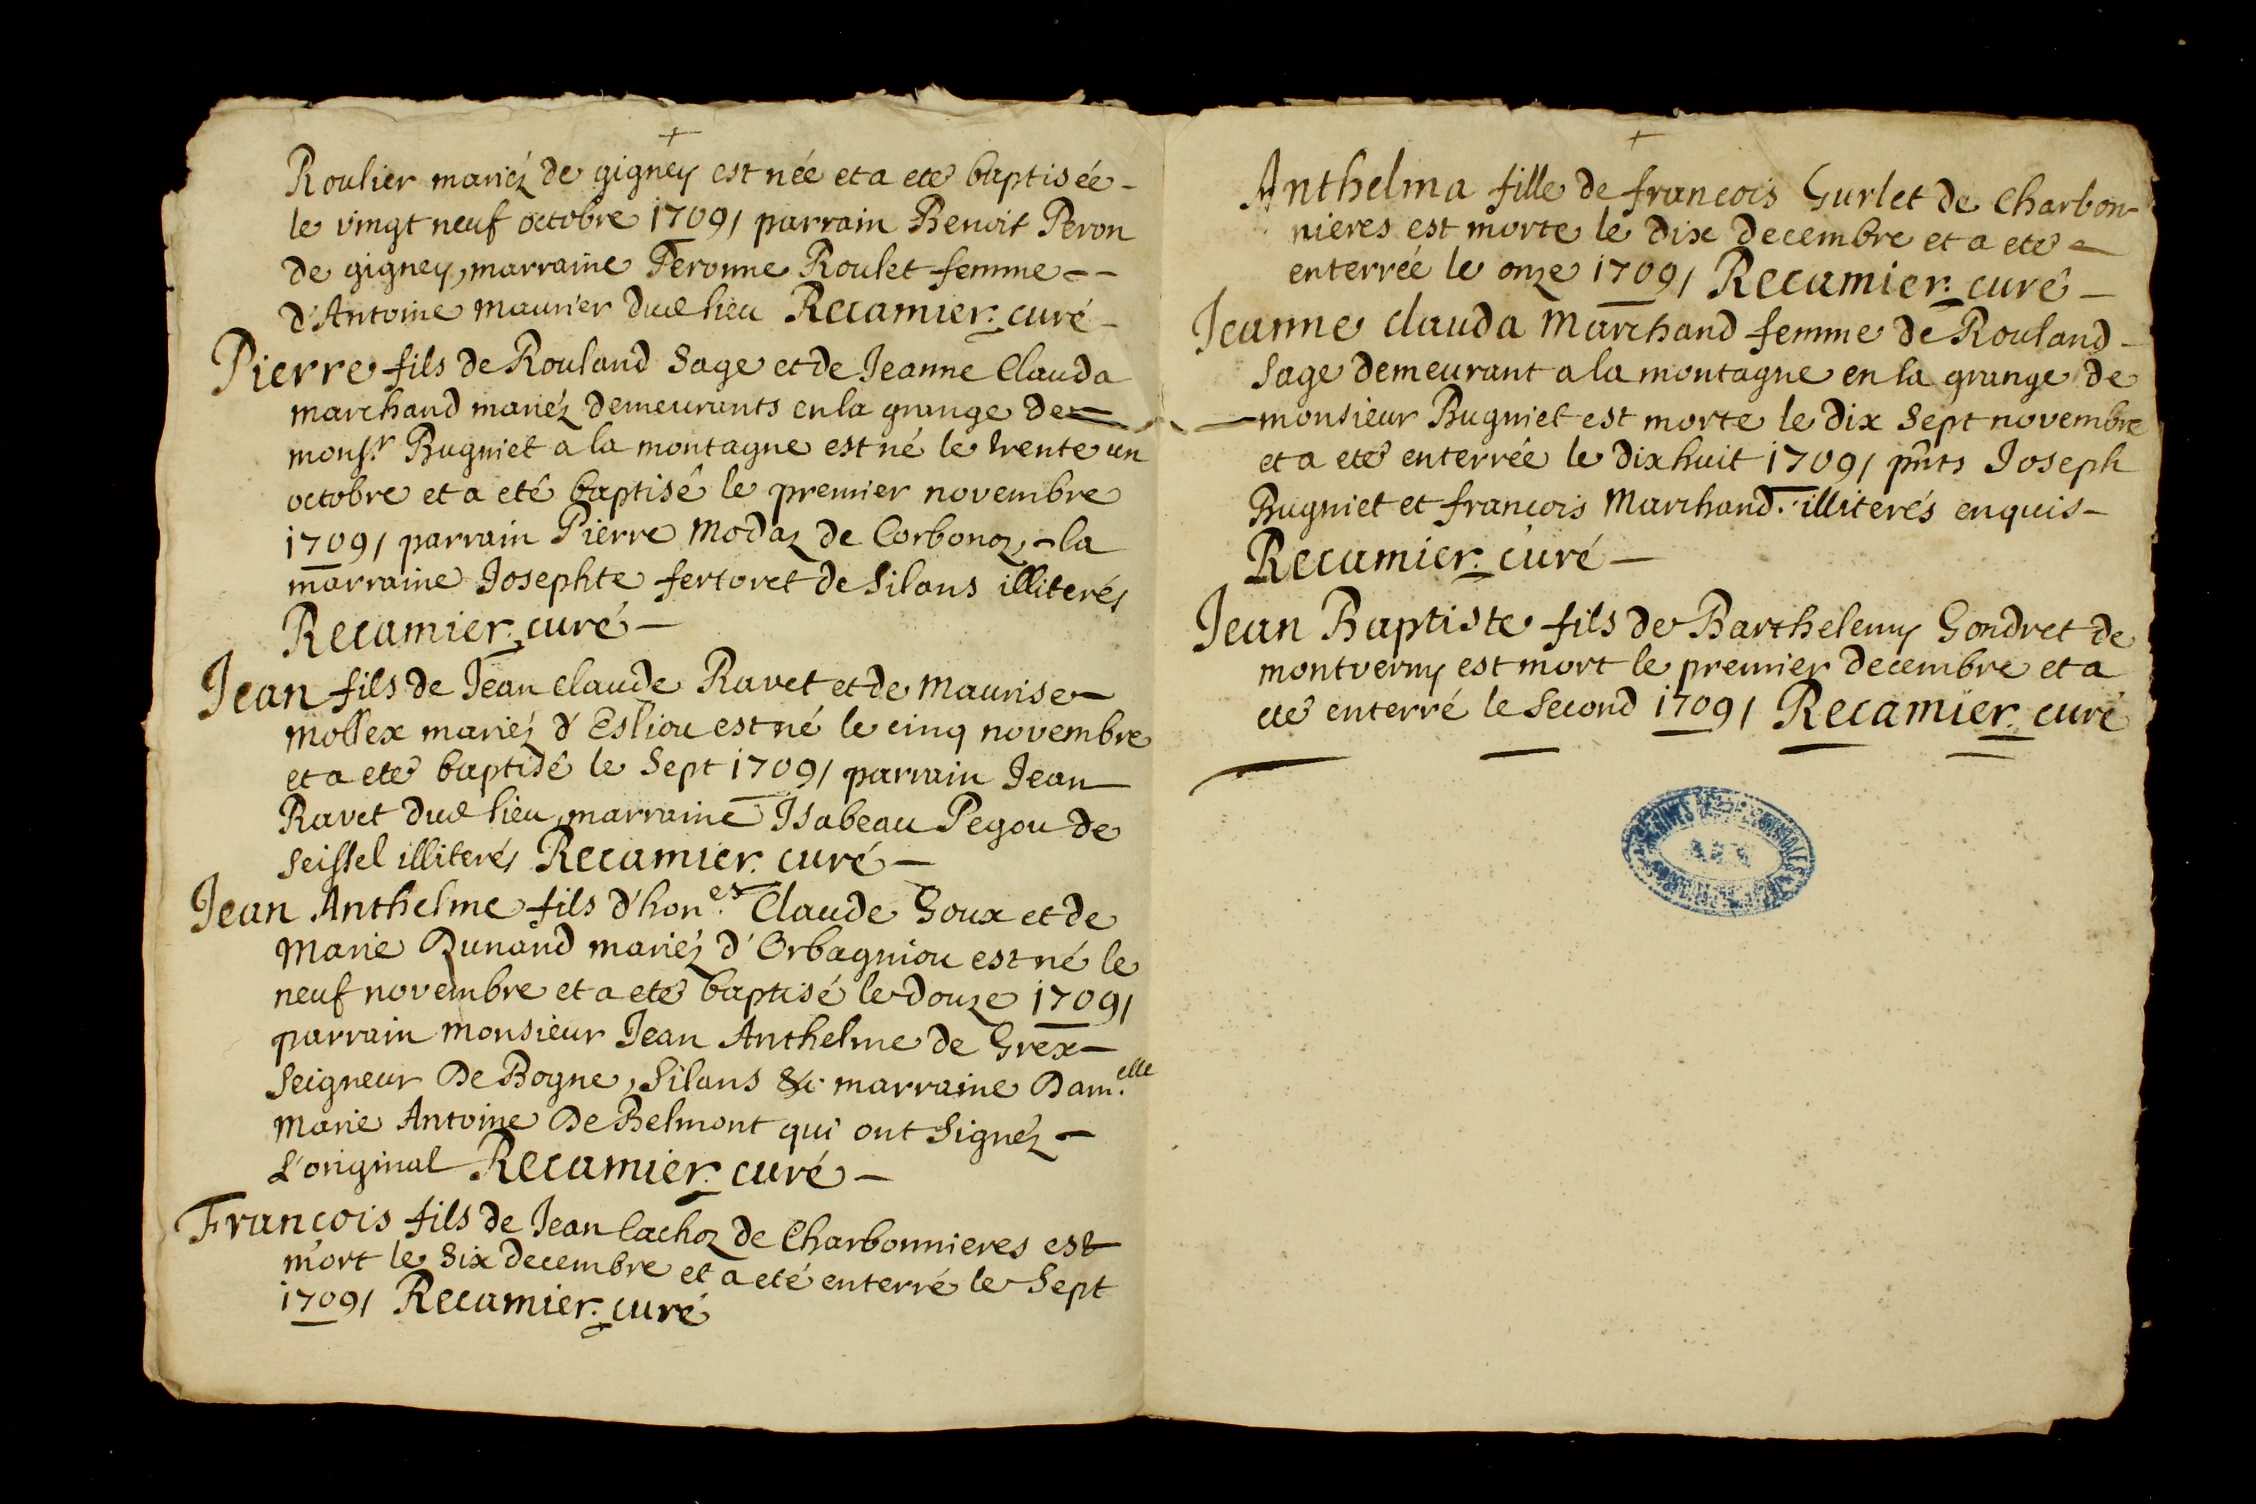 +
Roulier mariéz de gigney est née et a eté baptisée -
le vingt neuf octobre 1709 / parrain Benoit Peron
de gigney, marraine Peronne Roulet femme - -
d'Antoine maurier dud lieu Recamier. curé -
Pierre fils de Rouland Sage et de Jeanne Clauda
marchand mariéz demeurants en la grange de -
monsr. Bugniet a la montagne est né le trente un
octobre et a eté baptisé le premier novembre
1709 / parrain Pierre Modaz de Corbonoz, - la
marraine Josephte fertoret de Silans illiterés
Recamier. curé -
Jean fils de Jean claude Ravet et de maurise -
mollex mariéz d'Esliou est né le cinq novembre
et a eté baptisé le Sept 1709 / parrain Jean -
Ravet dud lieu, marraine Isabeau Pegou de
Seissel illiterés Recamier. curé -
Jean Anthelme fils d'hon.es Claude Goux et de
Marie Dunand mariéz d'Orbagniou est né le
neuf novembre et a eté baptisé le douze 1709 /
parrain monsieur Jean Anthelme de Grex -
Seigneur De Bogne, Silans &c. marraine Dam.elle
Marie Antoine De Belmont qui ont Signéz -
L'original Recamier. curé -
François fils de Jean lachoz de Charbonnieres est
mort le Six decembre et a eté enterré le Sept
1709 / Recamier. curé
+
Anthelma fille de francois Gurlet de Charbon-
nieres est morte le dix decembre et a eté -
enterrée le onze 1709 / Recamier. curé -
Jeanne clauda Marchand femme de Rouland -
Sage demeurant a la montagne en la grange de
- monsieur Bugniet est morte le dix Sept novembre
et a eté enterrée le dix huit 1709 / pnts Joseph
Bugniet et francois Marchand. illiterés enquis -
Recamier. curé -
Jean Baptiste fils de Barthelemy Gondret de
montverny est mort le premier decembre et a
eté enterré le Second 1709 / Recamier. curé